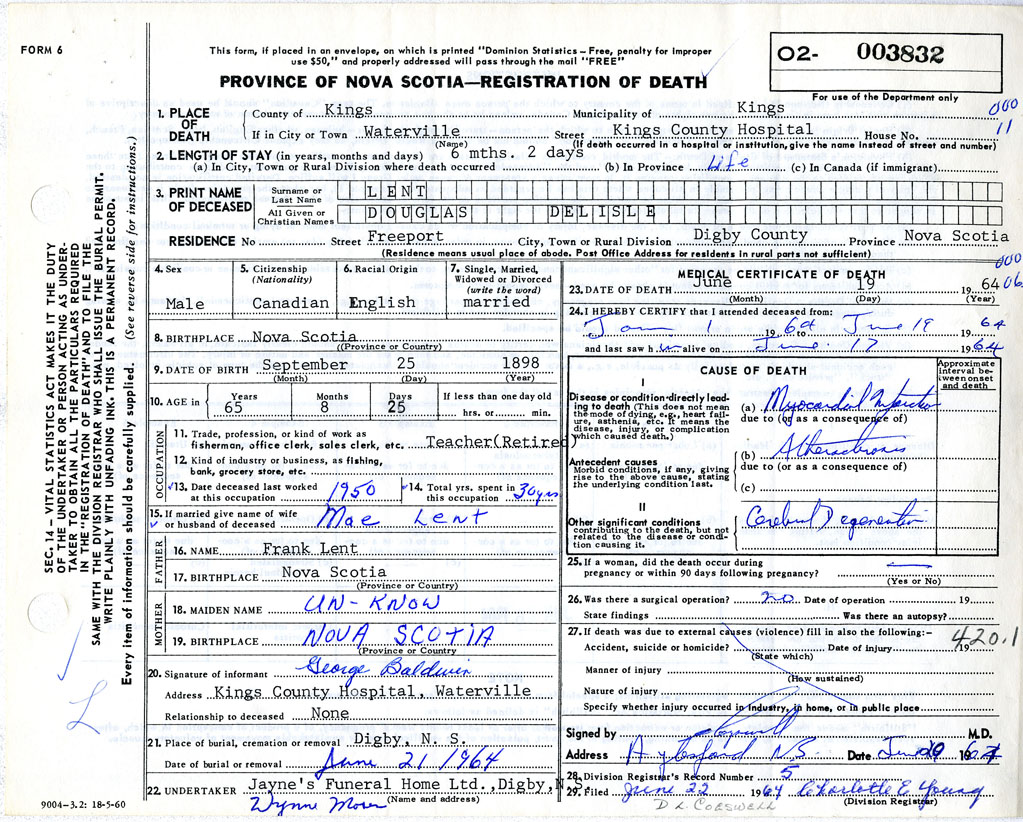 FORM 6
This form, if placed in an envelope, on which is printed "Dominion Statistics – Free, penalty for improper
use $50," and properly addressed will pass through the mail "FREE"
PROVINCE OF NOVA SCOTIA—REGISTRATION OF DEATH
02- 003832
For use of the Department only
SEC. 14 – VITAL STATISTICS ACT MAKES IT THE DUTY
OF THE UNDERTAKER OR PERSON ACTING AS UNDER-
TAKER TO OBTAIN ALL THE PARTICULARS REQUIRED
IN THE "REGISTRATION OF DEATH" AND TO FILE THE
SAME WITH THE DIVISION REGISTRAR WHO SHALL ISSUE THE BURIAL PERMIT.
WRITE PLAINLY WITH UNFADING INK. THIS IS A PERMANENT RECORD.
Every item of information should be carefully supplied. (See reverse side for instructions.)
1. PLACE OF DEATH
County of Kings Municipality of Kings 000
If in City or Town Waterville Street Kings County Hospital House No. 11
(Name) (If death occurred in a hospital or institution, give the name instead of street and number)
2. LENGTH OF STAY (in years, months and days) 6 mths. 2 days
(a) In City, Town or Rural Division where death occurred (b) In Province Life (c) In Canada (if immigrant)
3. PRINT NAME OF DECEASED
Surname or Last Name LENT
All Given or Christian Names DOUGLAS DELISLE
RESIDENCE No Street Freeport City, Town or Rural Division Digby County Province Nova Scotia
(Residence means usual place of abode. Post Office Address for residents in rural parts not sufficient)
000
06
4. Sex
Male
5. Citizenship
(Nationality)
Canadian
6. Racial Origin
English
7. Single, Married,
Widowed or Divorced
(write the word)
married
8. BIRTHPLACE Nova Scotia
(Province or Country)
9. DATE OF BIRTH September 25 1898
(Month) (Day) (Year)
10. AGE in
Years Months Days If less than one day old
65 8 25 hrs. or min.
OCCUPATION
11. Trade, profession, or kind of work as
fisherman, office clerk, sales clerk, etc. Teacher(Retired)
12. Kind of industry or business, as fishing,
bank, grocery store, etc.
13. Date deceased last worked
at this occupation 1950
14. Total yrs. spent in
this occupation 30yrs
15. If married give name of wife
or husband of deceased Mae Lent
FATHER
16. NAME Frank Lent
17. BIRTHPLACE Nova Scotia
(Province or Country)
MOTHER
18. MAIDEN NAME UN-KNOW
19. BIRTHPLACE NOVA SCOTIA
(Province or Country)
20. Signature of informant George Baldwin
Address Kings County Hospital, Waterville
Relationship to deceased None
21. Place of burial, cremation or removal Digby, N. S.
Date of burial or removal June 21 1964
22. UNDERTAKER Jayne's Funeral Home Ltd.,Digby,N.S.
(Name and address)
Wynne
9004-3.2: 18-5-60
MEDICAL CERTIFICATE OF DEATH
23. DATE OF DEATH June 19 1964
(Month) (Day) (Year)
24. I HEREBY CERTIFY that I attended deceased from:
1 1964 to June 19 1964
and last saw him alive on June 17 1964
CAUSE OF DEATH
Approximate
interval be-
tween onset
and death
I
Disease or condition directly lead-
ing to death (This does not mean
the mode of dying, e.g., heart fail-
ure, asthenia, etc. It means the
disease, injury, or complication
which caused death.)
(a) Myocardial Infarction
due to (or as a consequence of)
Antecedent causes
Morbid conditions, if any, giving
rise to the above cause, stating
the underlying condition last.
(b)
due to (or as a consequence of)
(c)
II
Other significant conditions
contributing to the death, but not
related to the disease or condi-
tion causing it.
Cerebral Degeneration
25. If a woman, did the death occur during
pregnancy or within 90 days following pregnancy?
(Yes or No)
26. Was there a surgical operation? no Date of operation 19
State findings Was there an autopsy?
27. If death was due to external causes (violence) fill in also the following:–
Accident, suicide or homicide? Date of injury 19
(State which)
420.1
Manner of injury
(How sustained)
Nature of injury
Specify whether injury occurred in industry, in home, or in public place
Signed by M.D.
Address Aylesford N.S. Date
28. Division Registrar's Record Number 5
29. Filed June 22 1964 Charlotte E Young
(Division Registrar)
D L CORSWELL